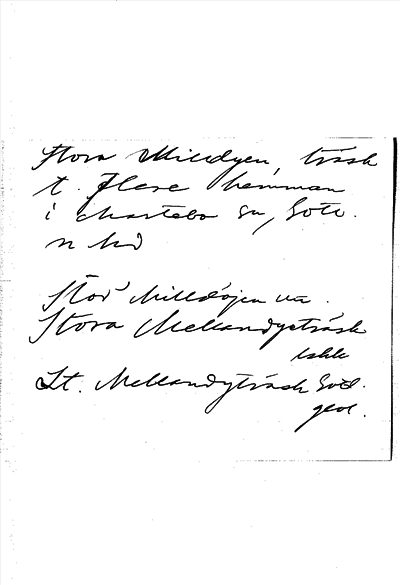 Stora Milldyen, träsk
t. flere hemman
i Martebo sn, Gotl.
n hd
Stor Milldöjen
Stora Mellandyeträsk
Lskk
St. Mellandyträsk God.
geol.